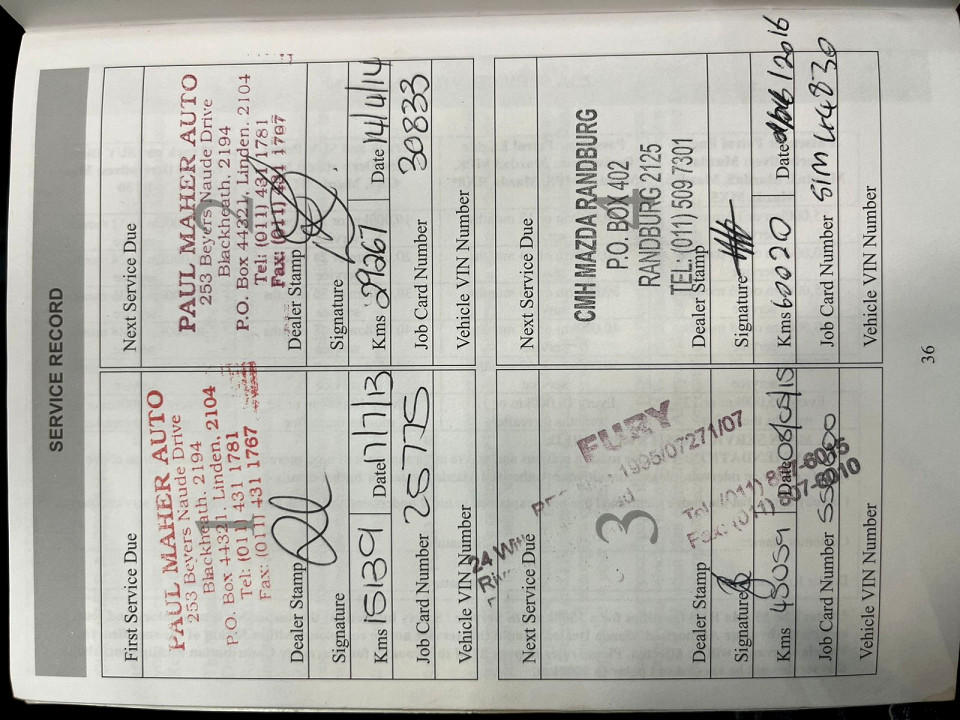 SERVICE RECORD
First Service Due
PAUL MAHER AUTO
253 Beyers Naude Drive
Blackheath. 2194
P.O. Box 44321. Linden, 2104
Tel: (011) 431 1781
Fax: (011) 431 1767
1
Dealer Stamp
Signature
Kms 15139 Date 17/7/13
Job Card Number 25775
Vehicle VIN Number
Next Service Due
PAUL MAHER AUTO
253 Beyers Naude Drive
Blackheath, 2194
P.O. Box 44321, Linden. 2104
Tel: (011) 431 1781
Fax: (011) 431 1767
2
Dealer Stamp
Signature
Kms 29267 Date 14/4/14
Job Card Number 30833
Vehicle VIN Number
Next Service Due
FURY
1995/07271/07
24
3
Tel: (011)
Fax: (011)
Dealer Stamp
Signature
Kms 45059 Date 08/04/15
Job Card Number
Vehicle VIN Number
Next Service Due
CMH MAZDA RANDBURG
P.O. BOX 402
RANDBURG 2125
TEL: (011) 509 7301
4
Dealer Stamp
Signature
Kms 60020 Date /2016
Job Card Number
Vehicle VIN Number
36